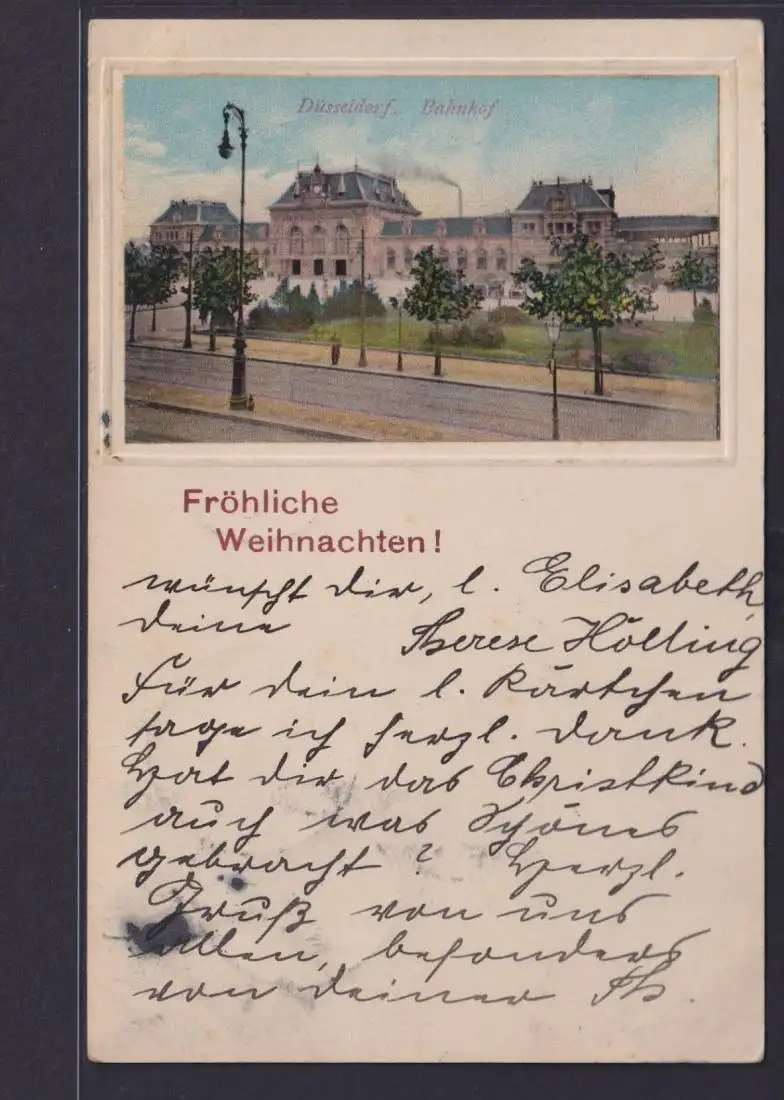 Düsseldorf. Bahnhof
Fröhliche
Weihnachten!
wünscht dir, l. Elisabeth,
deine Therese Hölling
Für dein l. Kärtchen
sage ich herzl. Dank.
Hat dir das Christkind
auch was Schönes
gebracht? Herzl.
Gruß von uns
allen, besonders
von deiner Th.